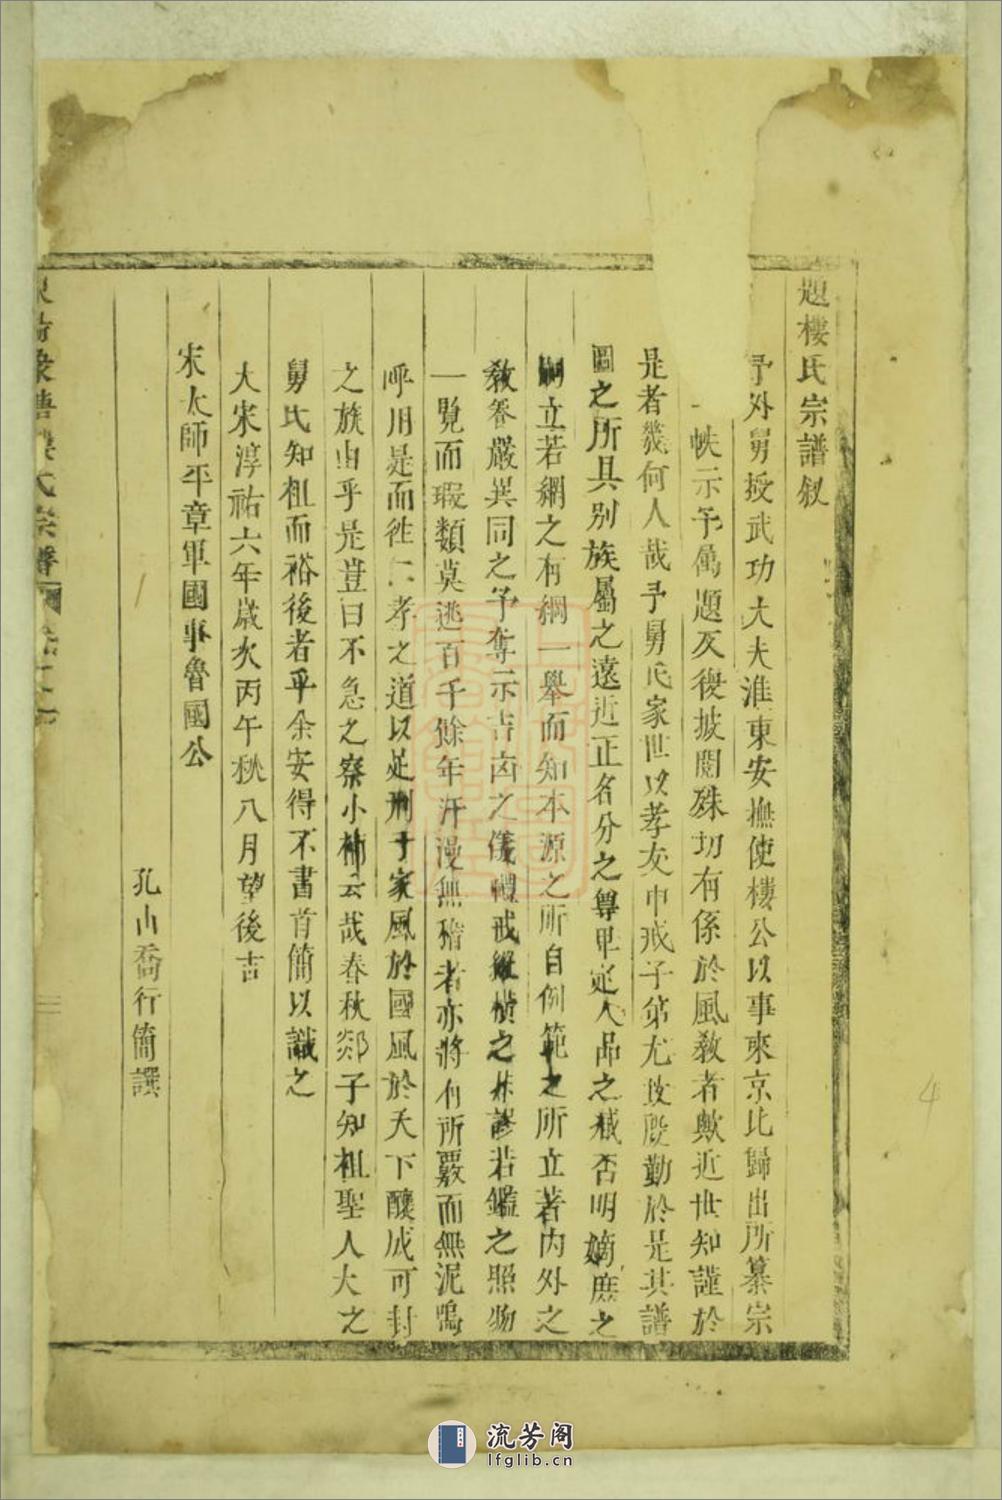 題樓氏宗譜叙
予外舅授武功大夫淮東安撫使樓公以事來京比歸出所纂宗
帙示予属題反復披閱殊切有係於風敎者歟近世知謹於
是者幾何人哉予舅氏家世以孝友申戒子弟尤致慇勤於是其譜
圖之所具别族屬之遠近正名分之尊卑定人品之臧否明嫡庶之
嗣立若網之有綱一舉而知本源之所自例範之所立著内外之
敎養嚴異同之予奪示吉凶之儀禮戒縱横之若鑑之照物
一覽而瑕類莫逃百千餘年汗漫無稽者亦將有所覈而無泥嗚
呼用是而徃仁孝之道以足刑于家風於國風於天下釀成可封
之族由乎是豈曰不急之察小補云哉春秋郯子知祖聖人大之
舅氏知祖而裕後者乎余安得不書首簡以識之
大宋淳祐六年歲次丙午秋八月望後吉
宋太師平章軍國事魯國公
孔山喬行簡譔
氏宗譜
4
流芳阁
lfglib.cn